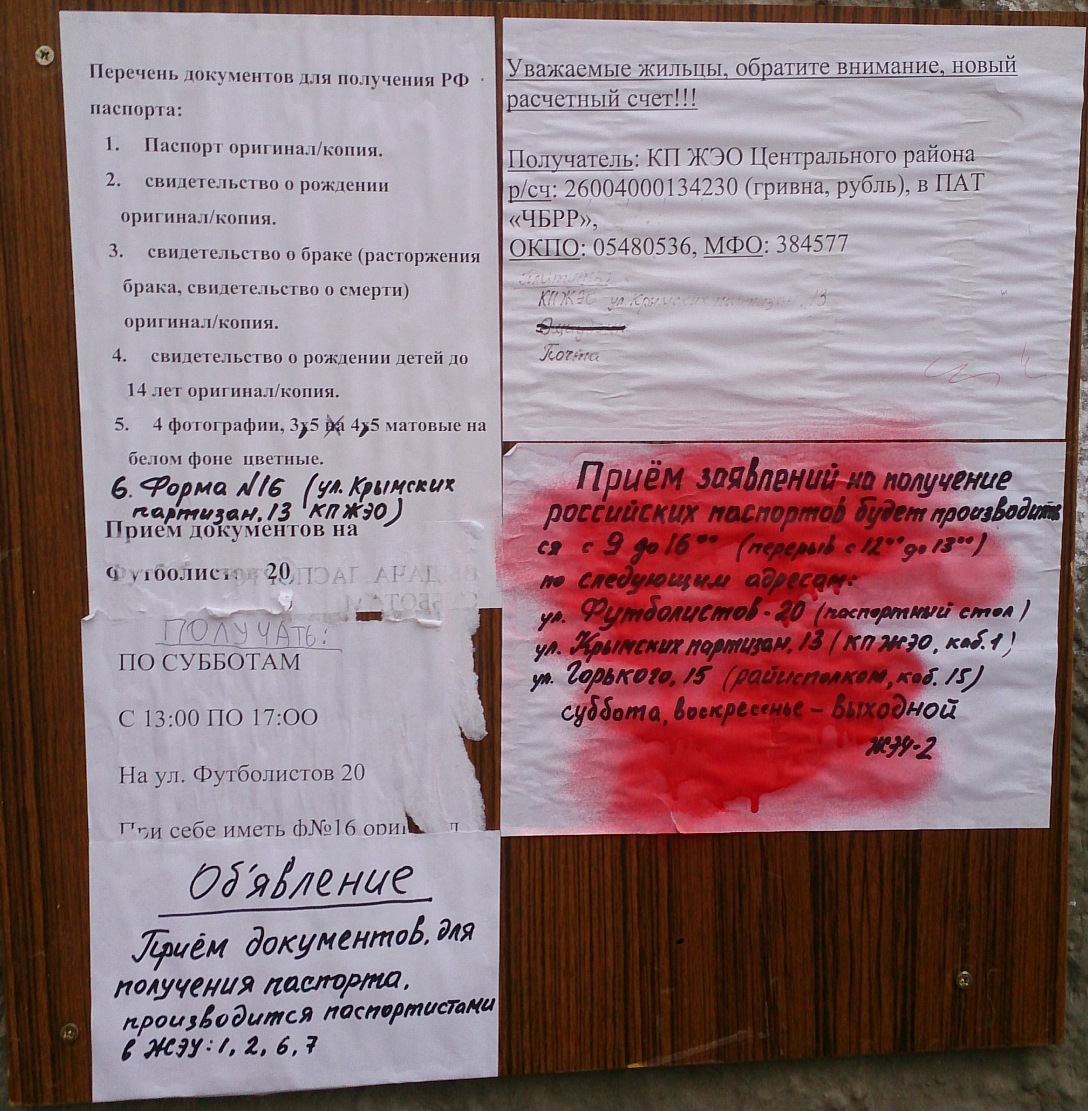 Перечень документов для получения РФ
паспорта:
1. Паспорт оригинал/копия.
2. свидетельство о рождении
оригинал/копия.
3. свидетельство о браке (расторжения
брака, свидетельство о смерти)
оригинал/копия.
4. свидетельство о рождении детей до
14 лет оригинал/копия.
5. 4 фотографии, 3,5 на 4,5 матовые на
белом фоне цветные.
6. Форма №16 (ул. Крымских
партизан, 13 КПЖЭО)
Прием документов на
20
ПОЛУЧАТЬ:
ПО СУББОТАМ
С 13:00 ПО 17:ОО
На ул. Футболистов 20
При себе иметь ф№16
Об'явление
Приём документов, для
получения паспорта,
производится паспортистами
в ЖЭУ: 1, 2, 6, 7
Уважаемые жильцы, обратите внимание, новый
расчетный счет!!!
Получатель: КП ЖЭО Центрального района
р/сч: 26004000134230 (гривна, рубль), в ПАТ
«ЧБРР»,
ОКПО: 05480536, МФО: 384577
КПЖЭО ул. Крымских партизан, 13
Почта
Приём заявлений на получение
российских паспортов будет производить
ся с 9 до 16⁰⁰ (перерыв с 12⁰⁰ до 13⁰⁰)
по следующим адресам:
ул. Футболистов - 20 (паспортный стол)
ул. Крымских партизан, 13 (КПЖЭО, каб. 1)
ул. Горького, 15 (райисполком, каб. 15)
суббота, воскресенье - выходной
ЖЭУ-2